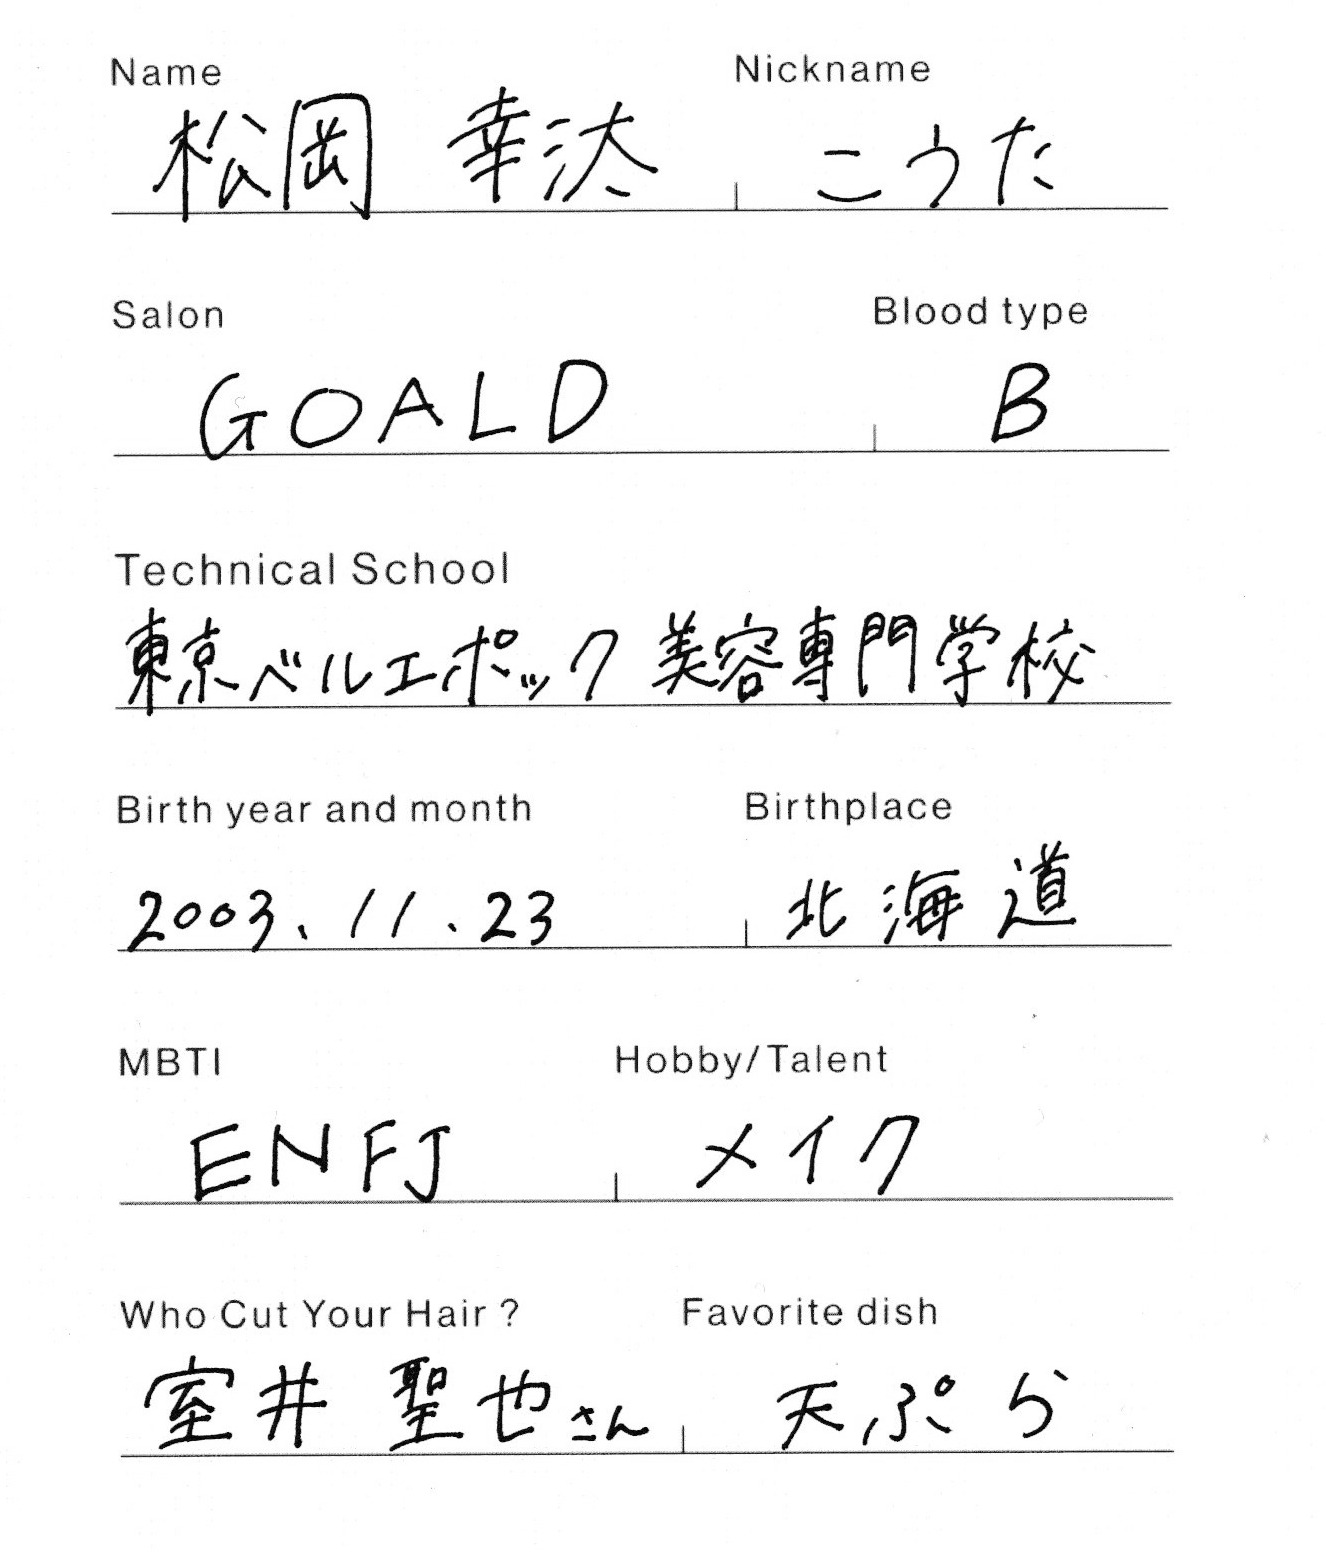 Name Nickname
松岡 幸汰 こうた
Salon Blood type
GOALD B
Technical School
東京ベルエポック美容専門学校
Birth year and month Birthplace
2003.11.23 北海道
MBTI Hobby/Talent
ENFJ メイク
Who Cut Your Hair? Favorite dish
室井 聖也さん 天ぷら